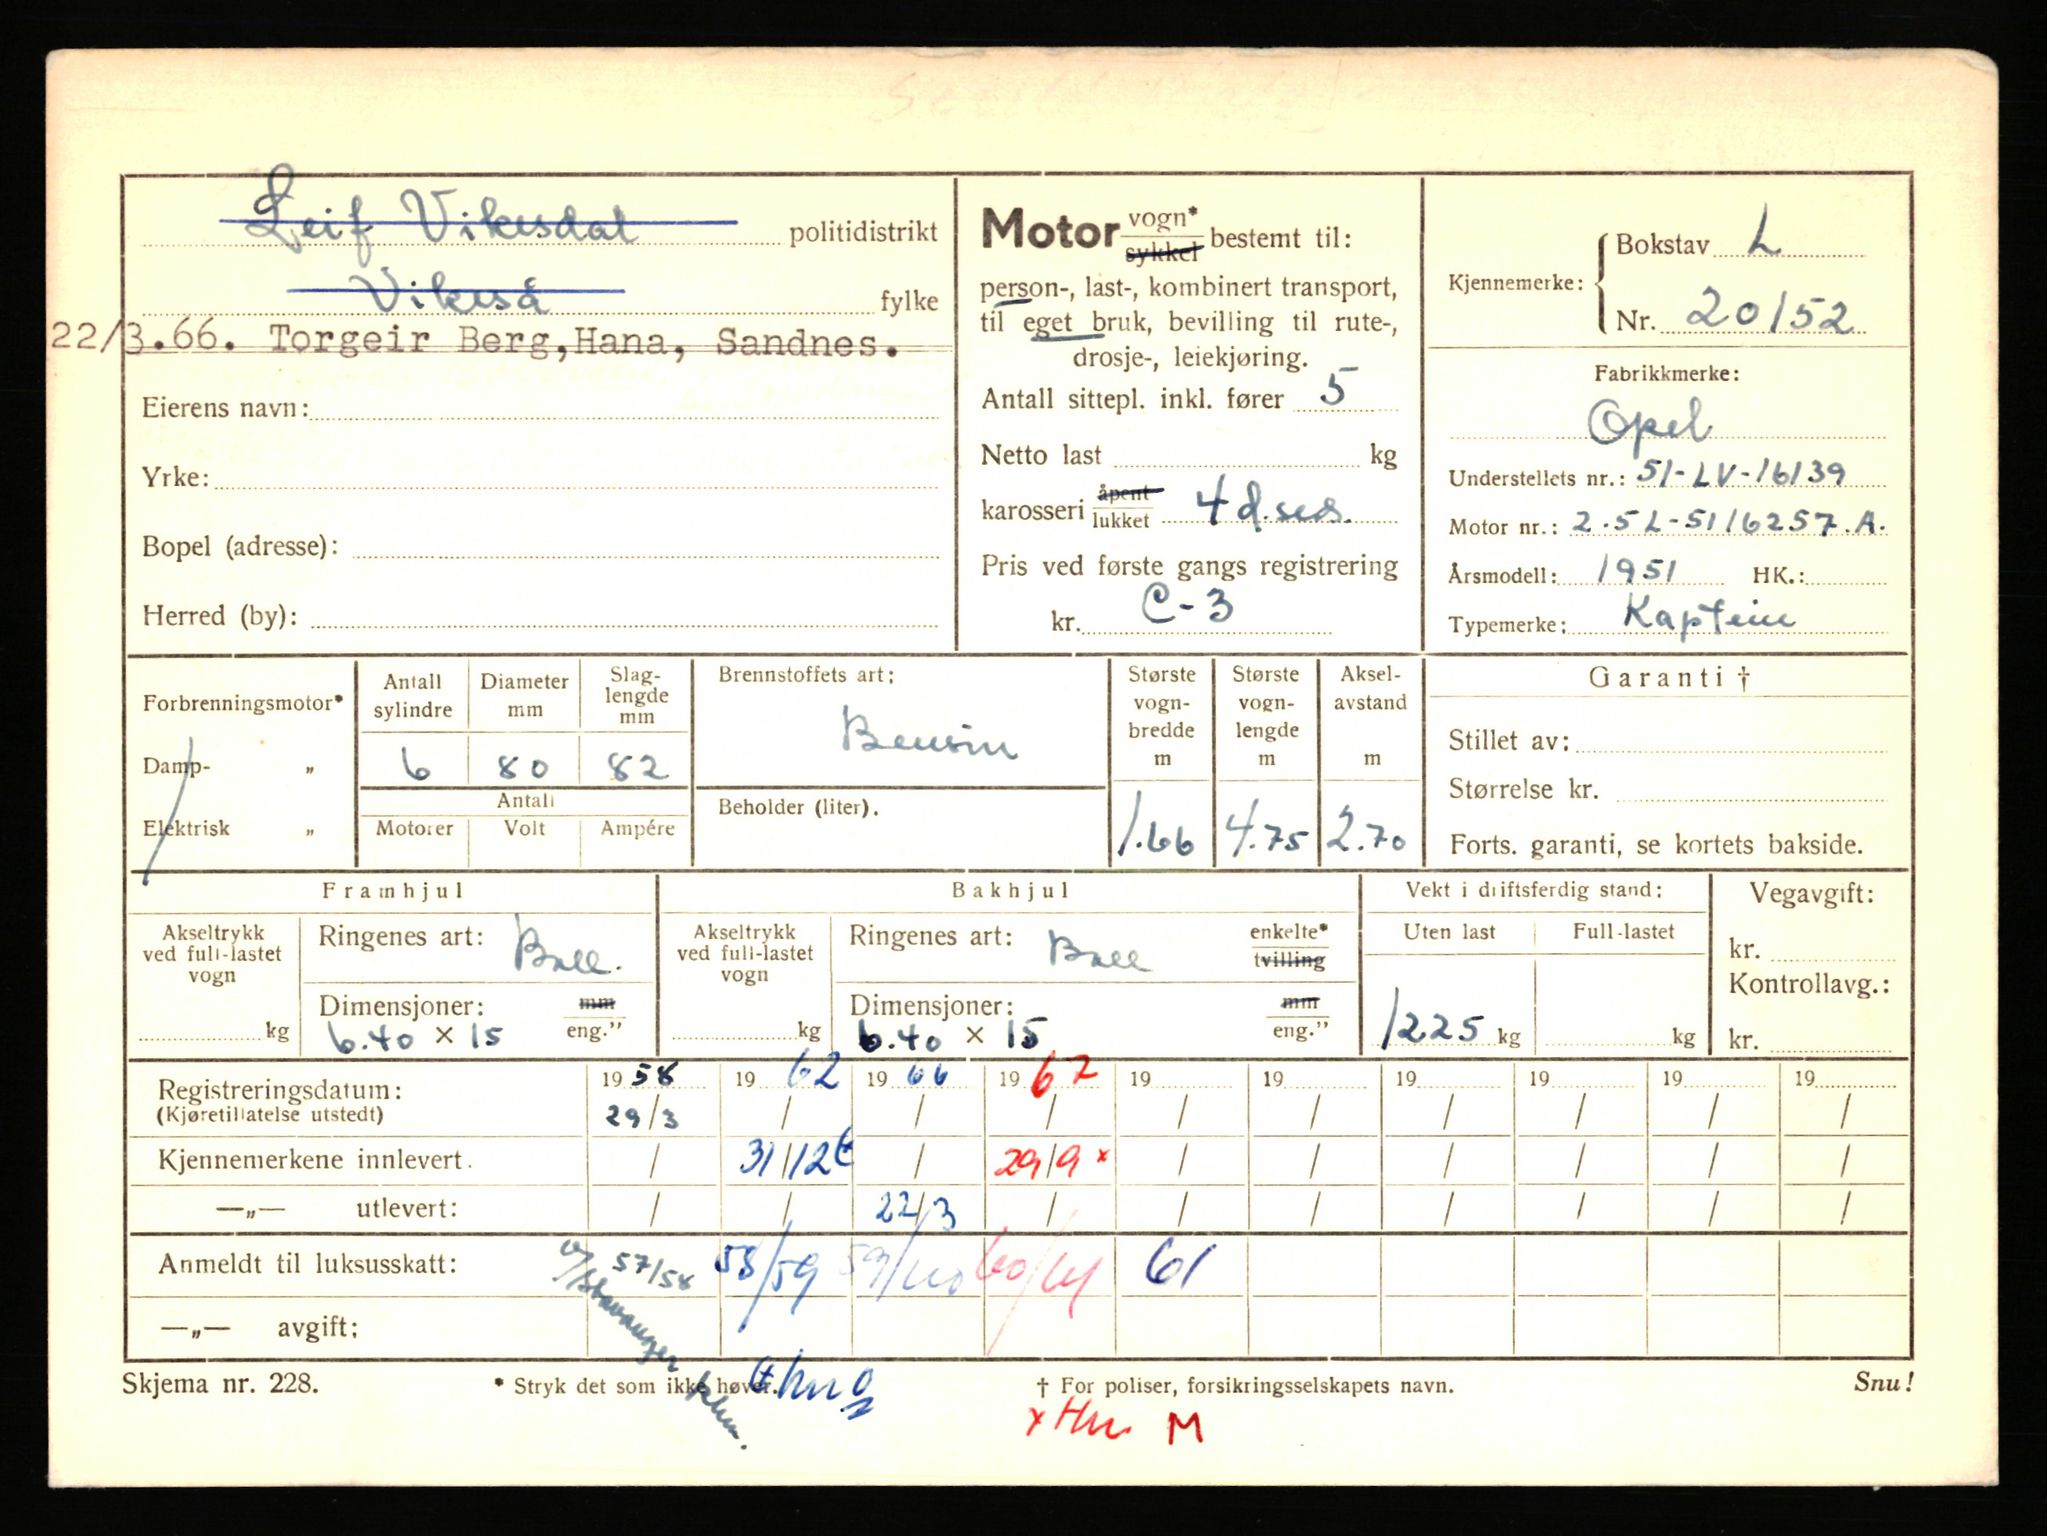 Leif Vikesdal politidistrikt
Vikeså fylke
22/3.66. Torgeir Berg, Hana, Sandnes.
Eierens navn:
Yrke:
Bopel (adresse):
Herred (by):
Motor vogn* sykkel bestemt til:
person-, last-, kombinert transport,
til eget bruk, bevilling til rute-,
drosje-, leiekjøring.
Antall sittepl. inkl. fører 5
Netto last kg
karosseri åpent lukket 4 d. sed.
Pris ved første gangs registrering
kr. C-3
Kjennemerke: Bokstav L
Nr. 20152
Fabrikkmerke:
Opel
Understellets nr.: 51-LV-16139
Motor nr.: 2.5L-5116257.A.
Årsmodell: 1951 HK.:
Typemerke: Kaptein
Forbrenningsmotor*
Damp- „
Elektrisk „
Antall sylindre
Diameter mm
Slag-lengde mm
6 80 82
Antall
Motorer Volt Ampére
Brennstoffets art:
Bensin
Beholder (liter).
Største vogn-bredde m
Største vogn-lengde m
Aksel-avstand m
1.66 4.75 2.70
Garanti †
Stillet av:
Størrelse kr.
Forts. garanti, se kortets bakside.
Framhjul
Akseltrykk ved full-lastet vogn
kg
Ringenes art: Ball.
Dimensjoner: mm
6.40 × 15 eng."
Bakhjul
Akseltrykk ved full-lastet vogn
kg
Ringenes art: Ball enkelte* tvilling
Dimensjoner: mm
6.40 × 15 eng."
Vekt i driftsferdig stand:
Uten last Full-lastet
1225 kg kg
Vegavgift:
kr.
Kontrollavg.:
kr.
Registreringsdatum: 1958 1962 1966 1967 19 19 19 19 19 19
(Kjøretillatelse utstedt) 29/3 / / / / / / / / /
Kjennemerkene innlevert. / 31/12 / 29/9 x / / / / / /
—„— utlevert: / / 22/3 / / / / / / /
Anmeldt til luksusskatt: 57/58 58/59 59/60 60/61 61
v/Stavanger
—„— avgift:
Skjema nr. 228.
* Stryk det som ikke høver.
† For poliser, forsikringsselskapets navn.
Snu!
x Hm M